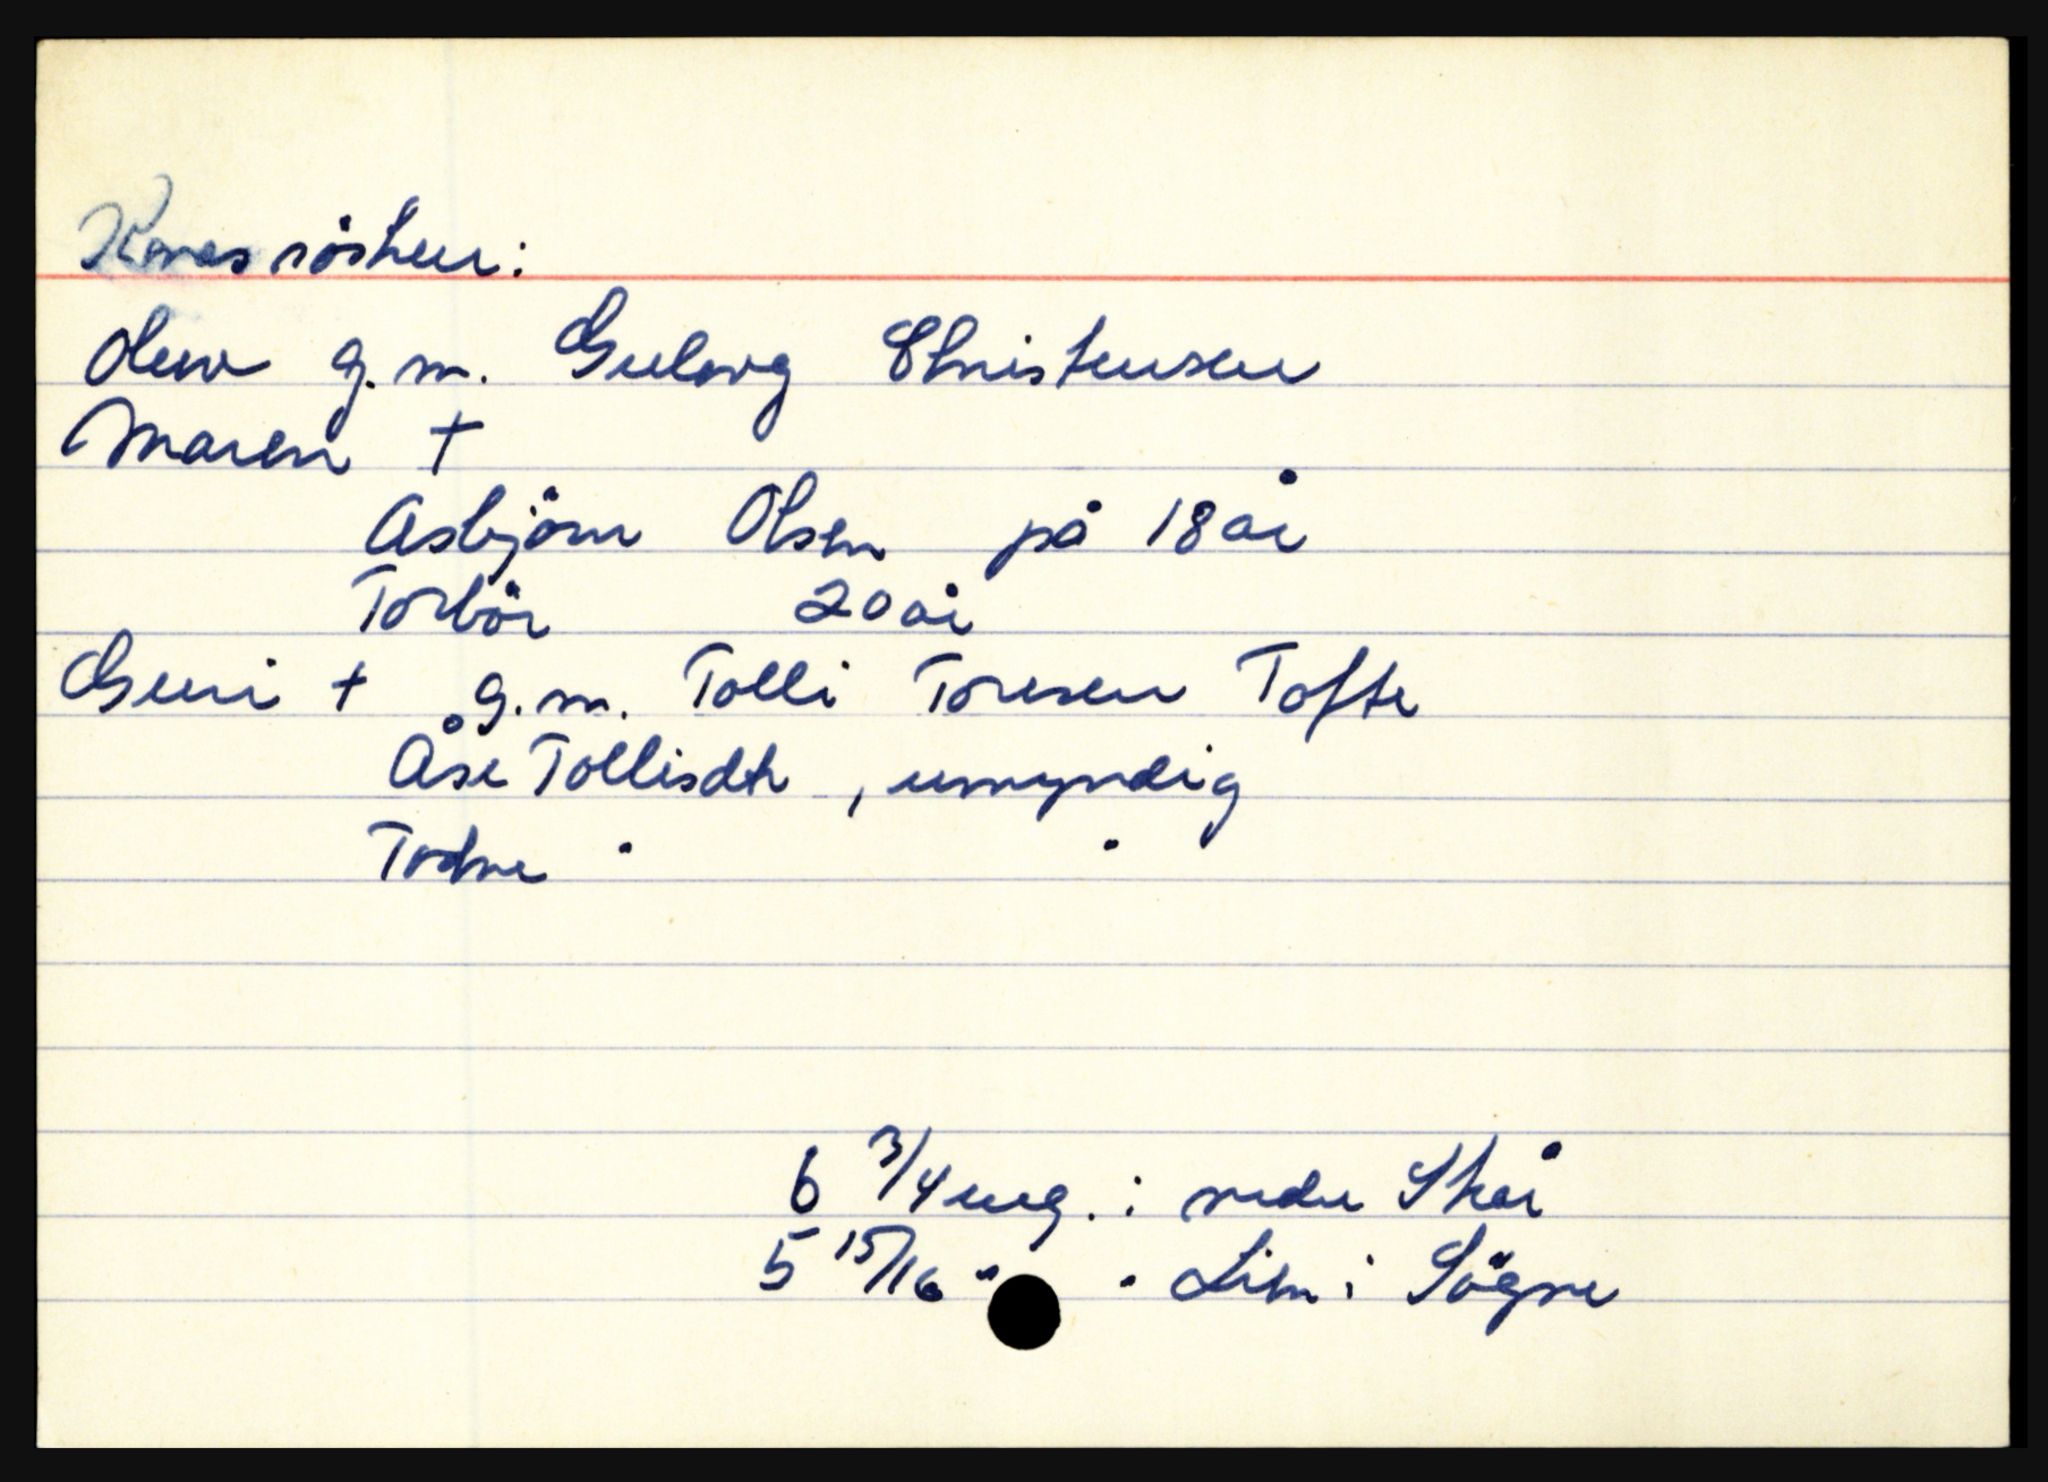 Kones söster:
g.m. Gulovg Christensen
Maren †
Asbjörn Olsen på 18 år
Torbör 20 år
Guri † g.m. Tolli Toresen Tofte
Åse Tollisdtr , umyndig
Todne " "
6 3/4 eng. i nedre Skår
5 15/16 " " Lian i Sögne